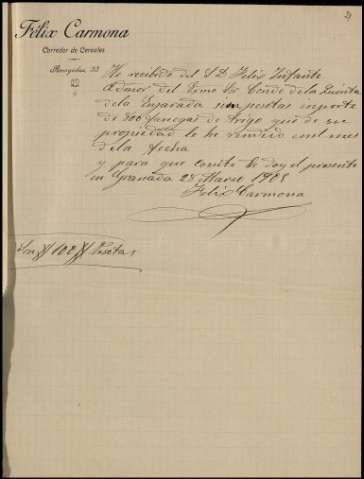 Félix Carmona
Corredor de Cereales
He recibido del S D. Felix Infante
Admor del Exmo Sr Conde de la Quinta
de la Enjarada pesetas importe
de 300 fanegas de trigo que de su
propiedad le he vendido en el mes
de la fecha
y para que conste le doy el presente
en Granada 28 Marzo 1905
Felix Carmona
Son 100 Pesetas